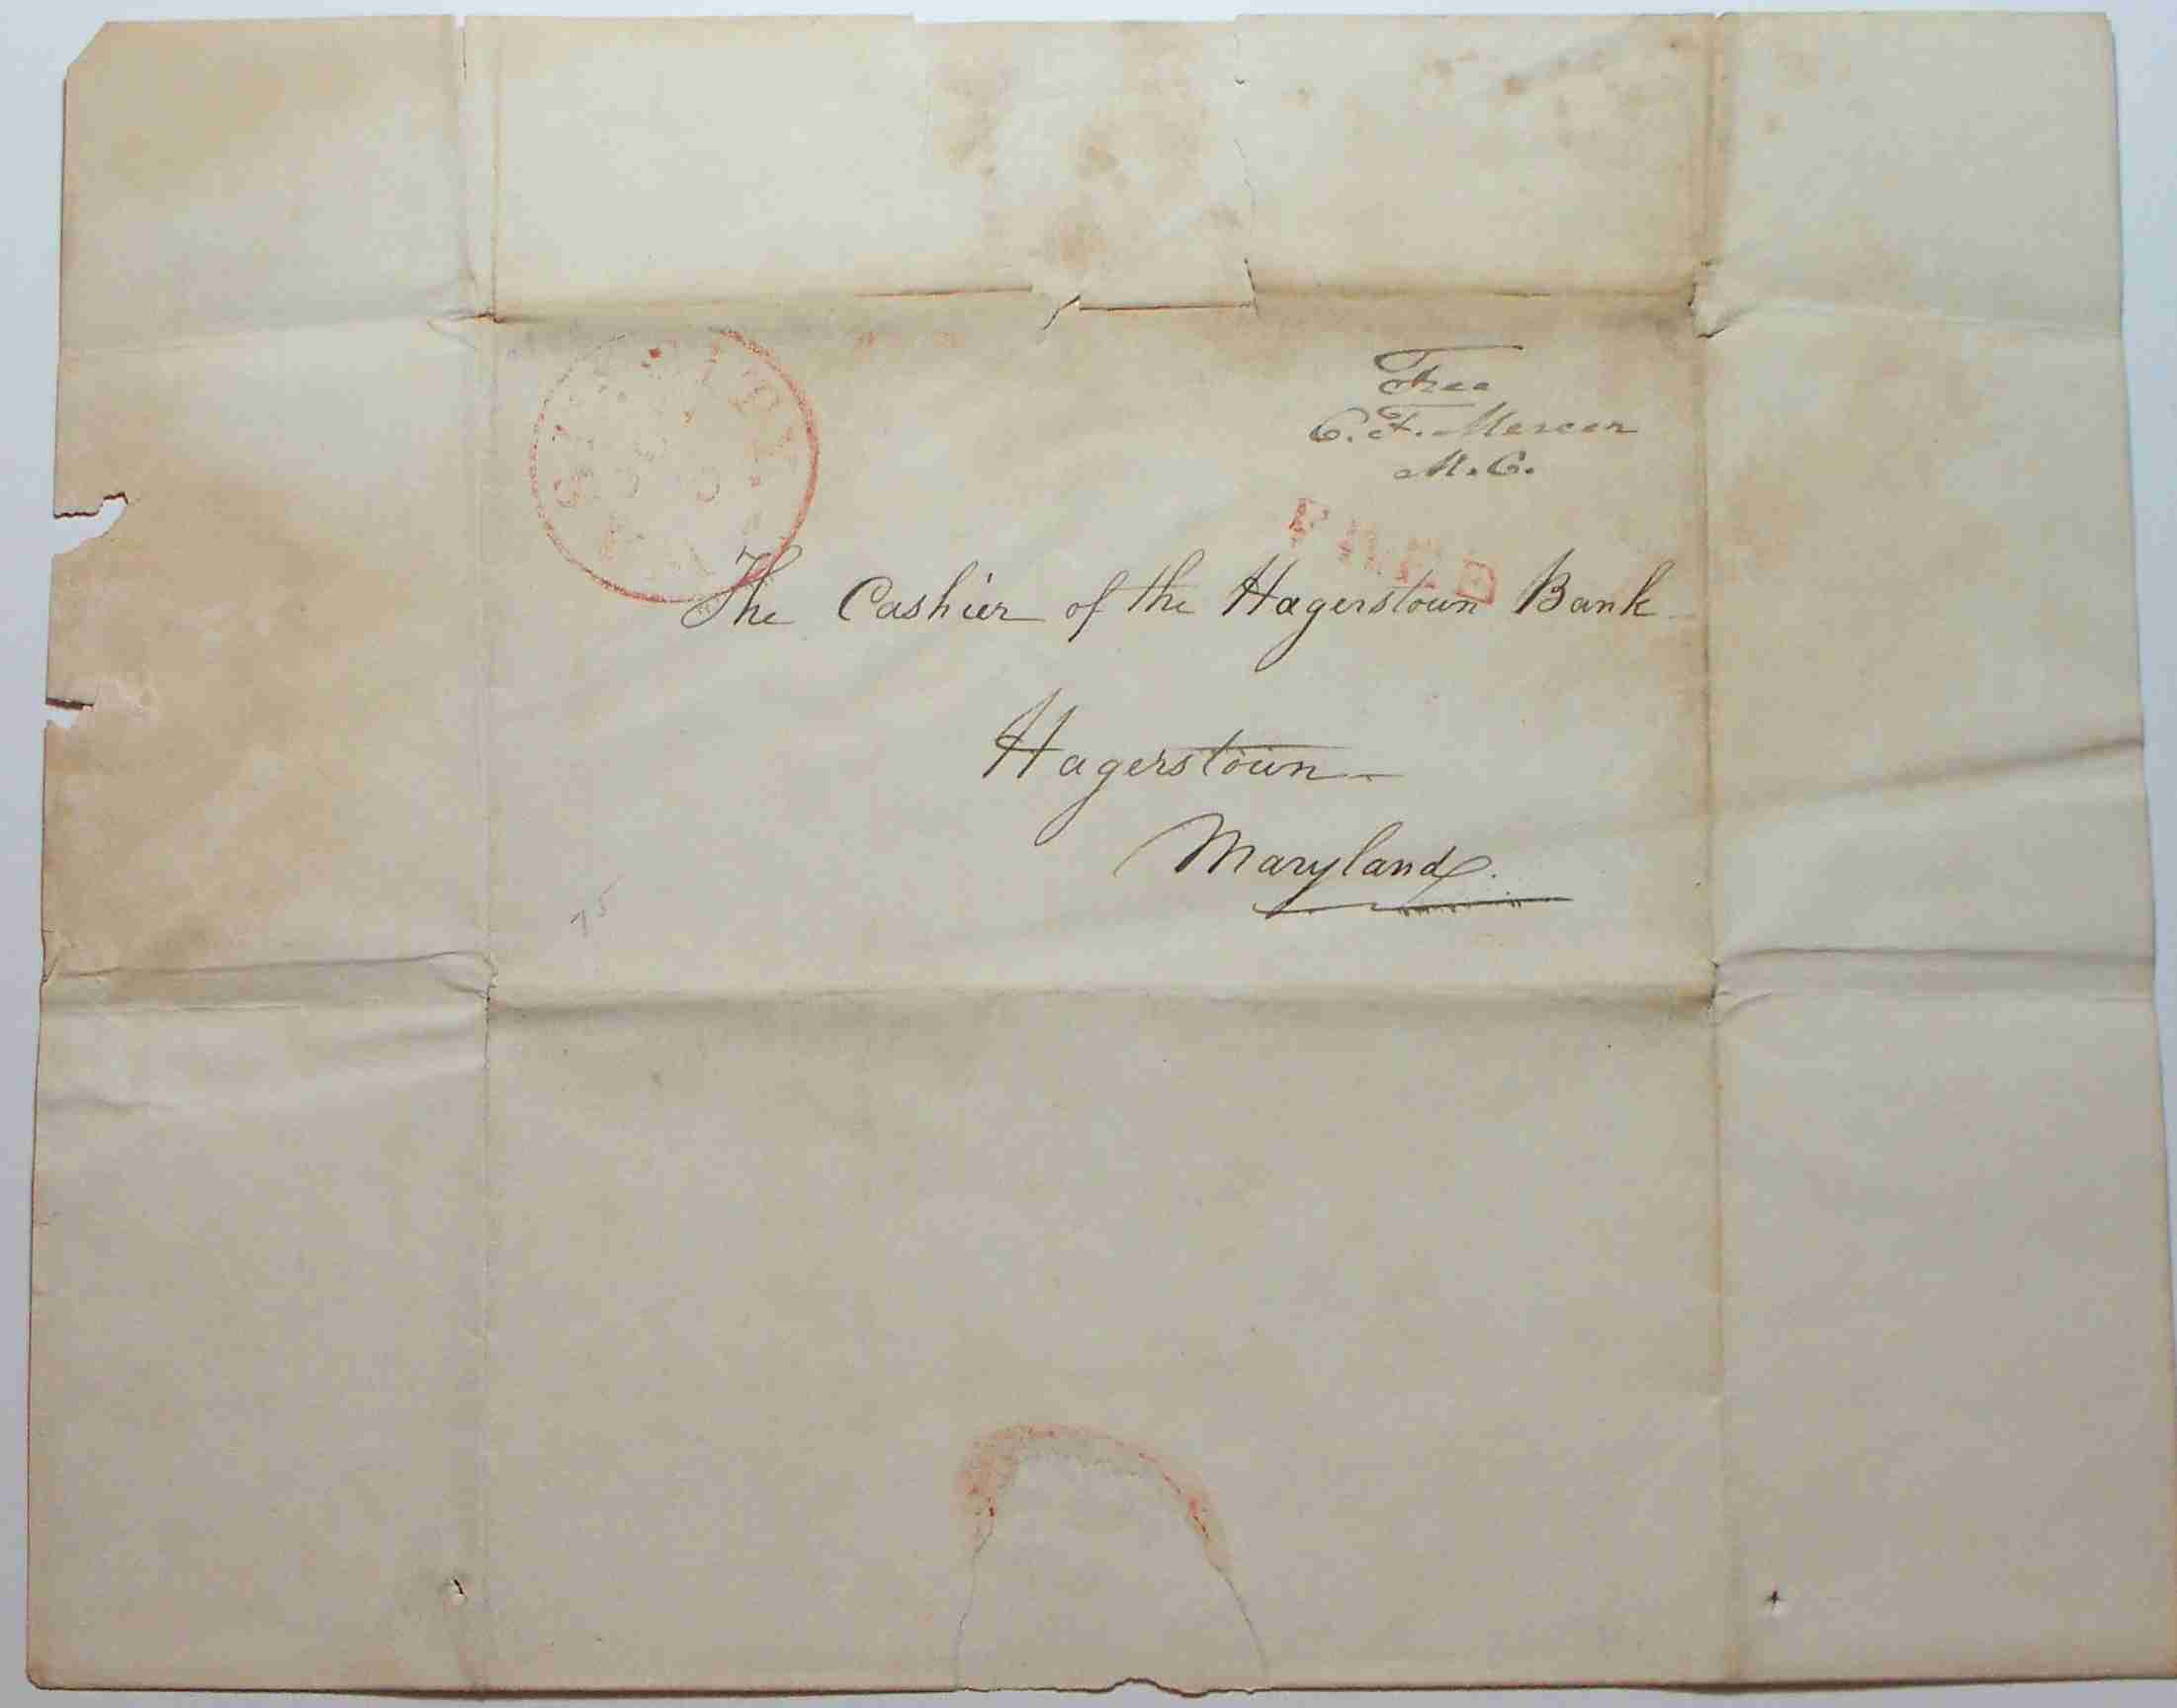 Free
C. F. Mercer
M. C.
The Cashier of the Hagerstown Bank
Hagerstown
Maryland.
75